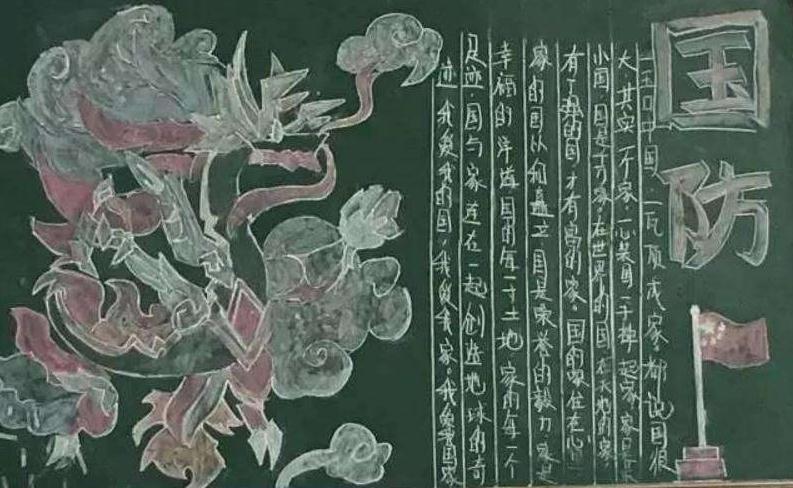 国防
一玉口中国 一瓦顶成家 都说国很
大，其实一个家 一心装国 一手撑起家 家
小国 国是千万家 在世界的国 在天地的家
有了强的国 才有富的家。国的家住在心
家的国以和矗立 国是荣誉的毅力 家是
幸福的洋溢 国的每一寸土地 家的每一个
足迹 国与家连在一起 创造地球的奇
迹 我爱我的国，我爱我家。我爱国家